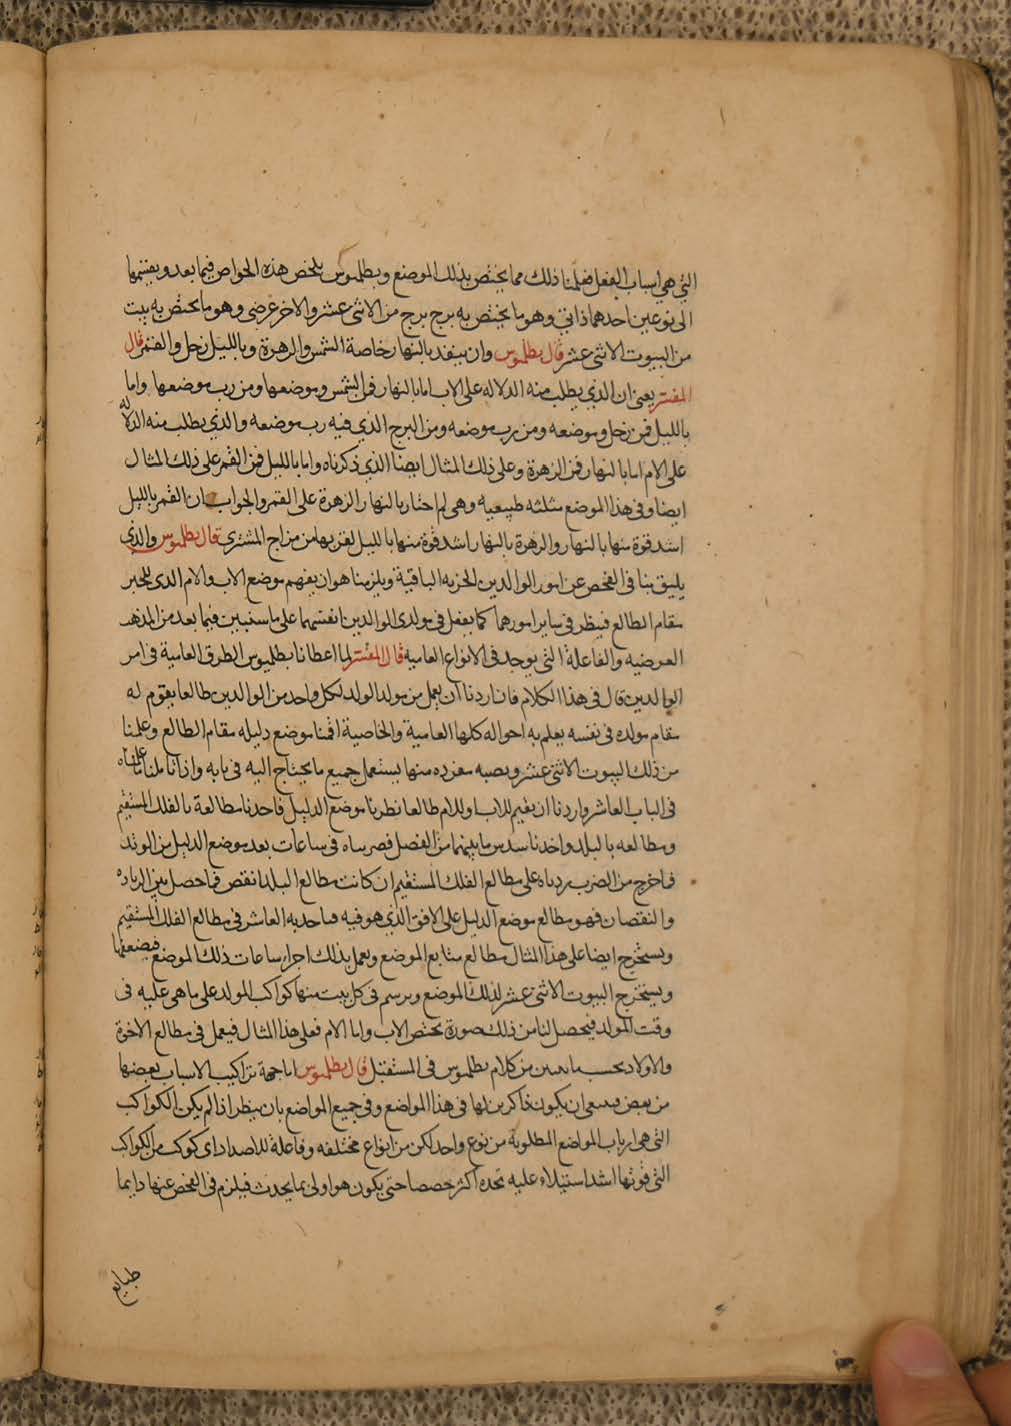 التي هي اسباب الفعل فعلمنا ذلك مما يختص بذلك الموضع وبطلميوس يلخص هذه الخواص فيما بعد ويقسمها
الى نوعين احدهما ذاتي وهو ما يختص به برج برج من الاثني عشر والاخر عرضي وهو ما يختص به بيت
من البيوت الاثني عشر قال بطلميوس وان يتفقد بالنهار خاصة الشمس والزهرة وبالليل زحل والقمر قال
المفسر يعني ان الذي يطلب منه الدلاله على الاب اما بالنهار فمن الشمس وموضعها ومن رب موضعها واما
بالليل فمن زحل وموضعه ومن رب موضعه ومن البرج الذي فيه رب موضعه والذي يطلب منه الدلاله
على الام اما بالنهار فمن الزهرة وعلى ذلك المثال ايضا الذي ذكرناه واما بالليل فمن القمر على ذلك المثال
ايضا وفي هذا الموضع مثلثه طبيعيه وهي لم اختار بالنهار الزهرة على القمر والجواب ان القمر بالليل
اشد قوة منها بالنهار والزهرة بالنهار اشد قوة منها بالليل لقربها من مزاج المشترى قال بطلميوس والذي
يليق بنا في الفحص عن امور الوالدين الجزيه الباقية ويلزمنا هو ان يفهم موضع الاب والام الذي للخبر
مقام الطالع فينظر في ساير امورهما كما يفعل في مولدى الوالدين انفسهما على ما سنبين فيما بعد من المذهب
العرضيه والفاعلة التي يوجد في الانواع العامية قال المفسر لما اعطانا بطلميوس الطرق العامية في امر
الوالدين قال في هذا الكلام فان اردنا ان يعمل من مولد الولد لكل واحد من الوالدين طالعا يقوم له
مقام مولده في نفسه يعلم به احواله كلها العامية والخاصية اقمنا موضع دليله مقام الطالع وعلمنا
من ذلك البيوت الاثني عشر ونصبه مفرده منها يستعمل جميع ما يحتاج اليه في بابه واذا تاملنا ما علمناه
في الباب العاشر واردنا ان يقيم للاب او للام طالعا نظرنا موضع الدليل فاخدنا مطالعة بالفلك المستقيم
ومطالعه بالبلد واخدنا سدس ما بينهما من الفصل فضربناه في ساعات بعد موضع الدليل من الوتد
فما خرج من الضرب زدناه على مطالع الفلك المستقيم ان كانت مطالع البلد انقص فما حصل بين الزياده
والنقصان فهو مطالع موضع الدليل على الافق الذي هو فيه فناخذ به العاشر في مطالع الفلك المستقيم
ويستخرج ايضا على هذا المثال مطالع متابع الموضع ونعمل بذلك اجزاء ساعات ذلك الموضع فيضعفها
ويستخرج البيوت الاثني عشر لذلك الموضع ويرسم في كل بيت منها كواكب المولد على ما هي عليه في
وقت المولد فيحصل لنا من ذلك صورة تختص الاب واما الام فعلى هذا المثال فيعمل في مطالع الاخوة
والاولاد بحسب ما نبين من كلام بطلميوس في المستقبل قال بطلميوس اما جهة تراكيب الاسباب بعضها
من بعض فينبغي ان يكون ذاكرين لها في هذا المواضع وفي جميع المواضع بان ينظر اذا لم يكن الكواكب
التي هي ارباب المواضع المطلوبة من نوع واحد لكن من انواع مختلفه وفاعلة للاضداد اى كوكب من الكواكب
التي قوتها اشد استيلاء عليه نجده اكثر خصصا حتى يكون هو اولى بما يحدث فيلزم في الفحص عنها دايما
طبايع